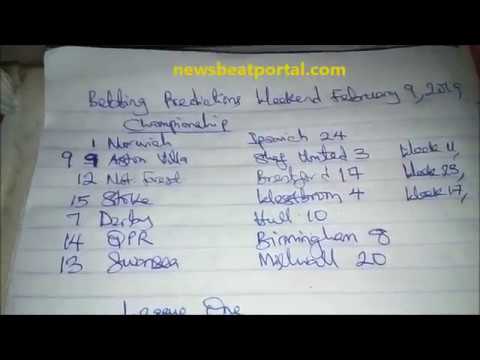 newsbeatportal.com
Betting Predictions Weekend February 9, 2019
Championship
1 Norwich Ipswich 24
9 9 Aston Villa Shef United 3 Week 11,
12 Not. Forest Brentford 17 Week 23,
15 Stoke Westbrom 4 Week 17,
7 Derby Hull 10
14 QPR Birmingham 8
13 Swansea Millwall 20
League One